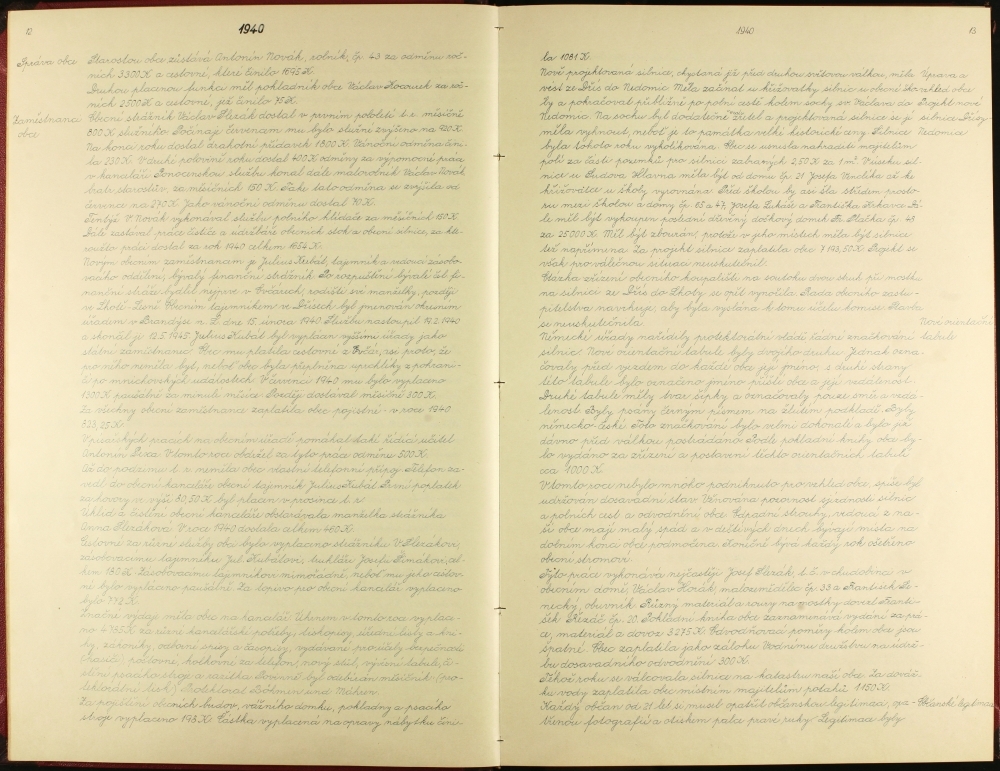 12
1940
Správa obce
Starostou obce zůstává Antonín Novák, rolník, čp. 43 za odměnu roč-
ních 3300 K a cestovné, které činilo 1695 K.
Druhou placenou funkci měl pokladník obce Václav Kocourek za roč-
ních 2500 K a cestovné, jež činilo 75 K.
Zaměstnanci
obce
Obecní strážník Václav Plecak dostal v prvním pololetí t. r. měsíčně
800 K služného. Počínaje červencem mu bylo služné zvýšeno na 920 K.
Na konci roku dostal drahotní přídavek 1800 K. Vánoční odměna čini-
la 230 K. V druhé polovině roku dostal 400 K odměny za výpomocné práce
v kanceláři. Ponocenskou službu konal dále malorolník Václav Novák
bratr starostův, za měsíčních 150 K. Také tato odměna se zvýšila od
července na 270 K. Jako vánoční odměnu dostal 70 K.
Tentýž V. Novák vykonával službu polního hlídače za měsíčních 150 K.
Dále zastával práce čističe a udržováče obecních stok a obecní silnice, za kte-
roužto práci dostal za rok 1940 celkem 1654 K.
Novým obecním zaměstnancem je Julius Kubát, tajemník a vedoucí zásobo-
vacího oddělení, bývalý finanční strážník. Po rozpuštění bývalé čsl. fi-
nanční stráže bydlil nejprve v Ovčárech, rodišti své manželky, později
ve Lhotě. Zaně Obecním tajemníkem ve Dřísech byl jmenován okresním
úřadem v Brandýse n. L. dne 15. února 1940. Službu nastoupil 19.2.1940
a skonal ji 12.5.1945. Julius Kubát byl vyplácen vyššími úřady jako
státní zaměstnanec. Obec mu platila cestovné z Ovčár, asi proto, že
pro něho neměla byt, neboť obec byla přeplněna uprchlíky z pohrani-
čí po mnichovských událostech. V červenci 1940 mu bylo vyplaceno
1500 K paušálně za minulé měsíce. Později dostával měsíčně 300 K.
Za všechny obecní zaměstnance zaplatila obec pojistné - v roce 1940
523,25 K.
V písařských pracích na obecním úřadě pomáhal také řídící učitel
Antonín Lexa. V tomto roce obdržel za tyto práce odměnu 500 K.
Až do podzimu t. r. neměla obec vlastní telefonní přípoj. Telefon za-
vedl do obecní kanceláře obecní tajemník Julius Kubát. První poplatek
za hovory ve výši 80,50 K byl placen v prosinci t. r.
Úklid a čistění obecní kanceláře obstarávala manželka strážníka
Anna Plecáková. V roce 1940 dostala celkem 460 K.
Cestovné za různé služby obci bylo vyplaceno strážníku V. Plecákovi,
zásobovacímu tajemníku Jul. Kubátovi, truhláři Josefu Šimákovi, cel-
kem 180 K. Zásobovacímu tajemníkovi mimořádně, neboť mu jeho cestov-
né bylo vypláceno paušálně. Za topivo pro obecní kancelář vyplaceno
bylo 772 K.
Značné výdaje měla obec na kancelář. Úhrnem v tomto roce vyplace-
no 4735 K za různé kancelářské potřeby, tiskopisy, úřední listy a kni-
hy, zákoníky, odborné spisy a časopisy, vydávané prováděly bezpečnosti
(hasiči), poštovné, kolkovné za telefon, nový stůl, vývěsní tabuli, či-
stění psacího stroje a razítka. Povinně byl odebírán měsíčník (pro-
tektorátní tisk) Protektorat Böhmen und Mähren.
Za pojištění obecních budov, vážního domku, pokladny a psacího
stroje vyplaceno 198 K. Částka vyplacená na opravy nábytku čini-
1940
13
la 1081 K.
Nově projektovaná silnice, chystaná již před druhou světovou válkou, měla
vést ze Dřís do Nedomic. Měla začínat u křižovatky silnic u obecní ško-
ly a pokračovat přibližně po polní cestě kolem sochy sv. Václava do
Nedomic. Na sochu byl dodatečně zřetel a projektovaná silnice se jí
měla vyhnout, neboť je to památka velké historické ceny. Silnice
byla tohoto roku vykolíkována. Obec se usnesla nahraditi majitelům
polí za části pozemků pro silnici zabraných 2,50 K za 1 m². V úseku sil-
nice u Sudova Hlavna měla být od domu čp. 21 Josefa Mencláka až ke
křižovatce u školy, vyrovnána. Před školou by asi šla středem prosto-
ru mezi školou a domy čp. 85 a 47, Josefa Lukáše a Františka Trkavce. Dá-
le měl být vykoupen poslední dřevěný doškový domek Fr. Plačka čp. 48
za 25000 K. Měl být zbourán, protože v jeho místech měla být silnice
též napřímena. Za projekt silnice zaplatila obec 7193,50 K. Projekt se
však pro válečnou situaci neuskutečnil.
Úprava a
vzhled obce
Projekt nové
silnice Dřísy-
Nedomice
Otázka zřízení obecního koupaliště na soutoku dvou struh při mostku
na silnici ze Dřís do Lhoty se opět vynořila. Rada obecního zastu-
pitelstva navrhuje, aby byla vyslána k tomu účelu komise. Stavba
se neuskutečnila.
Nové orientační
tabule
Německé úřady nařídily protektorátní vládě řádné značkování
silnic. Nové orientační tabule byly dvojího druhu. Jednak ozna-
čovaly před vjezdem do každé obce její jméno, z druhé strany
této tabule bylo označeno jméno příští obce a její vzdálenost.
Druhé tabule měly tvar šipky a označovaly pouze směr a vzdá-
lenost. Byly psány černým písmem na žlutém podkladě. Byly
německo-české. Toto značkování bylo velmi dokonalé a bylo již
dávno před válkou postrádáno. Podle pokladní knihy obce by-
lo vydáno za zřízení a postavení těchto orientačních tabulí
cca 1000 K.
V tomto roce nebylo mnoho podniknuto pro vzhled obce, spíše byl
udržován dosavadní stav. Věnována pozornost sjízdnosti silnic
a polních cest a odvodnění obce. Odpadní strouhy, vedoucí z na-
ší obce mají malý spád a v deštivých dnech bývají místa na
dolním konci obce podmáčena. Konečně bývá každý rok ošetřeno
obecní stromoví.
Tyto práce vykonává nejčastěji Josef Sázák, t. č. v chudobinci v
obecním domě, Václav Horák, malozemědělec čp. 33 a František Se-
necký, obuvník. Různý materiál a vozy na mostky dovezl Franti-
šek Řezáč čp. 20. Pokladní kniha obce zaznamenává vydání za prá-
ce, materiál a dovoz 3275 K. Odvodňovací poměry kolem obce jsou
špatné. Obec zaplatila jako zálohu Vodnímu družstvu na údrž-
bu dosavadního odvodnění 300 K.
Téhož roku se válcovala silnice na katastru naší obce. Za dováž-
ku vody zaplatila obec místním majitelům potahů 1150 K.
Každý občan od 21 let se musel opatřit občanskou legitimací, opa-
třenou fotografií a otiskem palce pravé ruky. Legitimace byly
Občanské legitimace